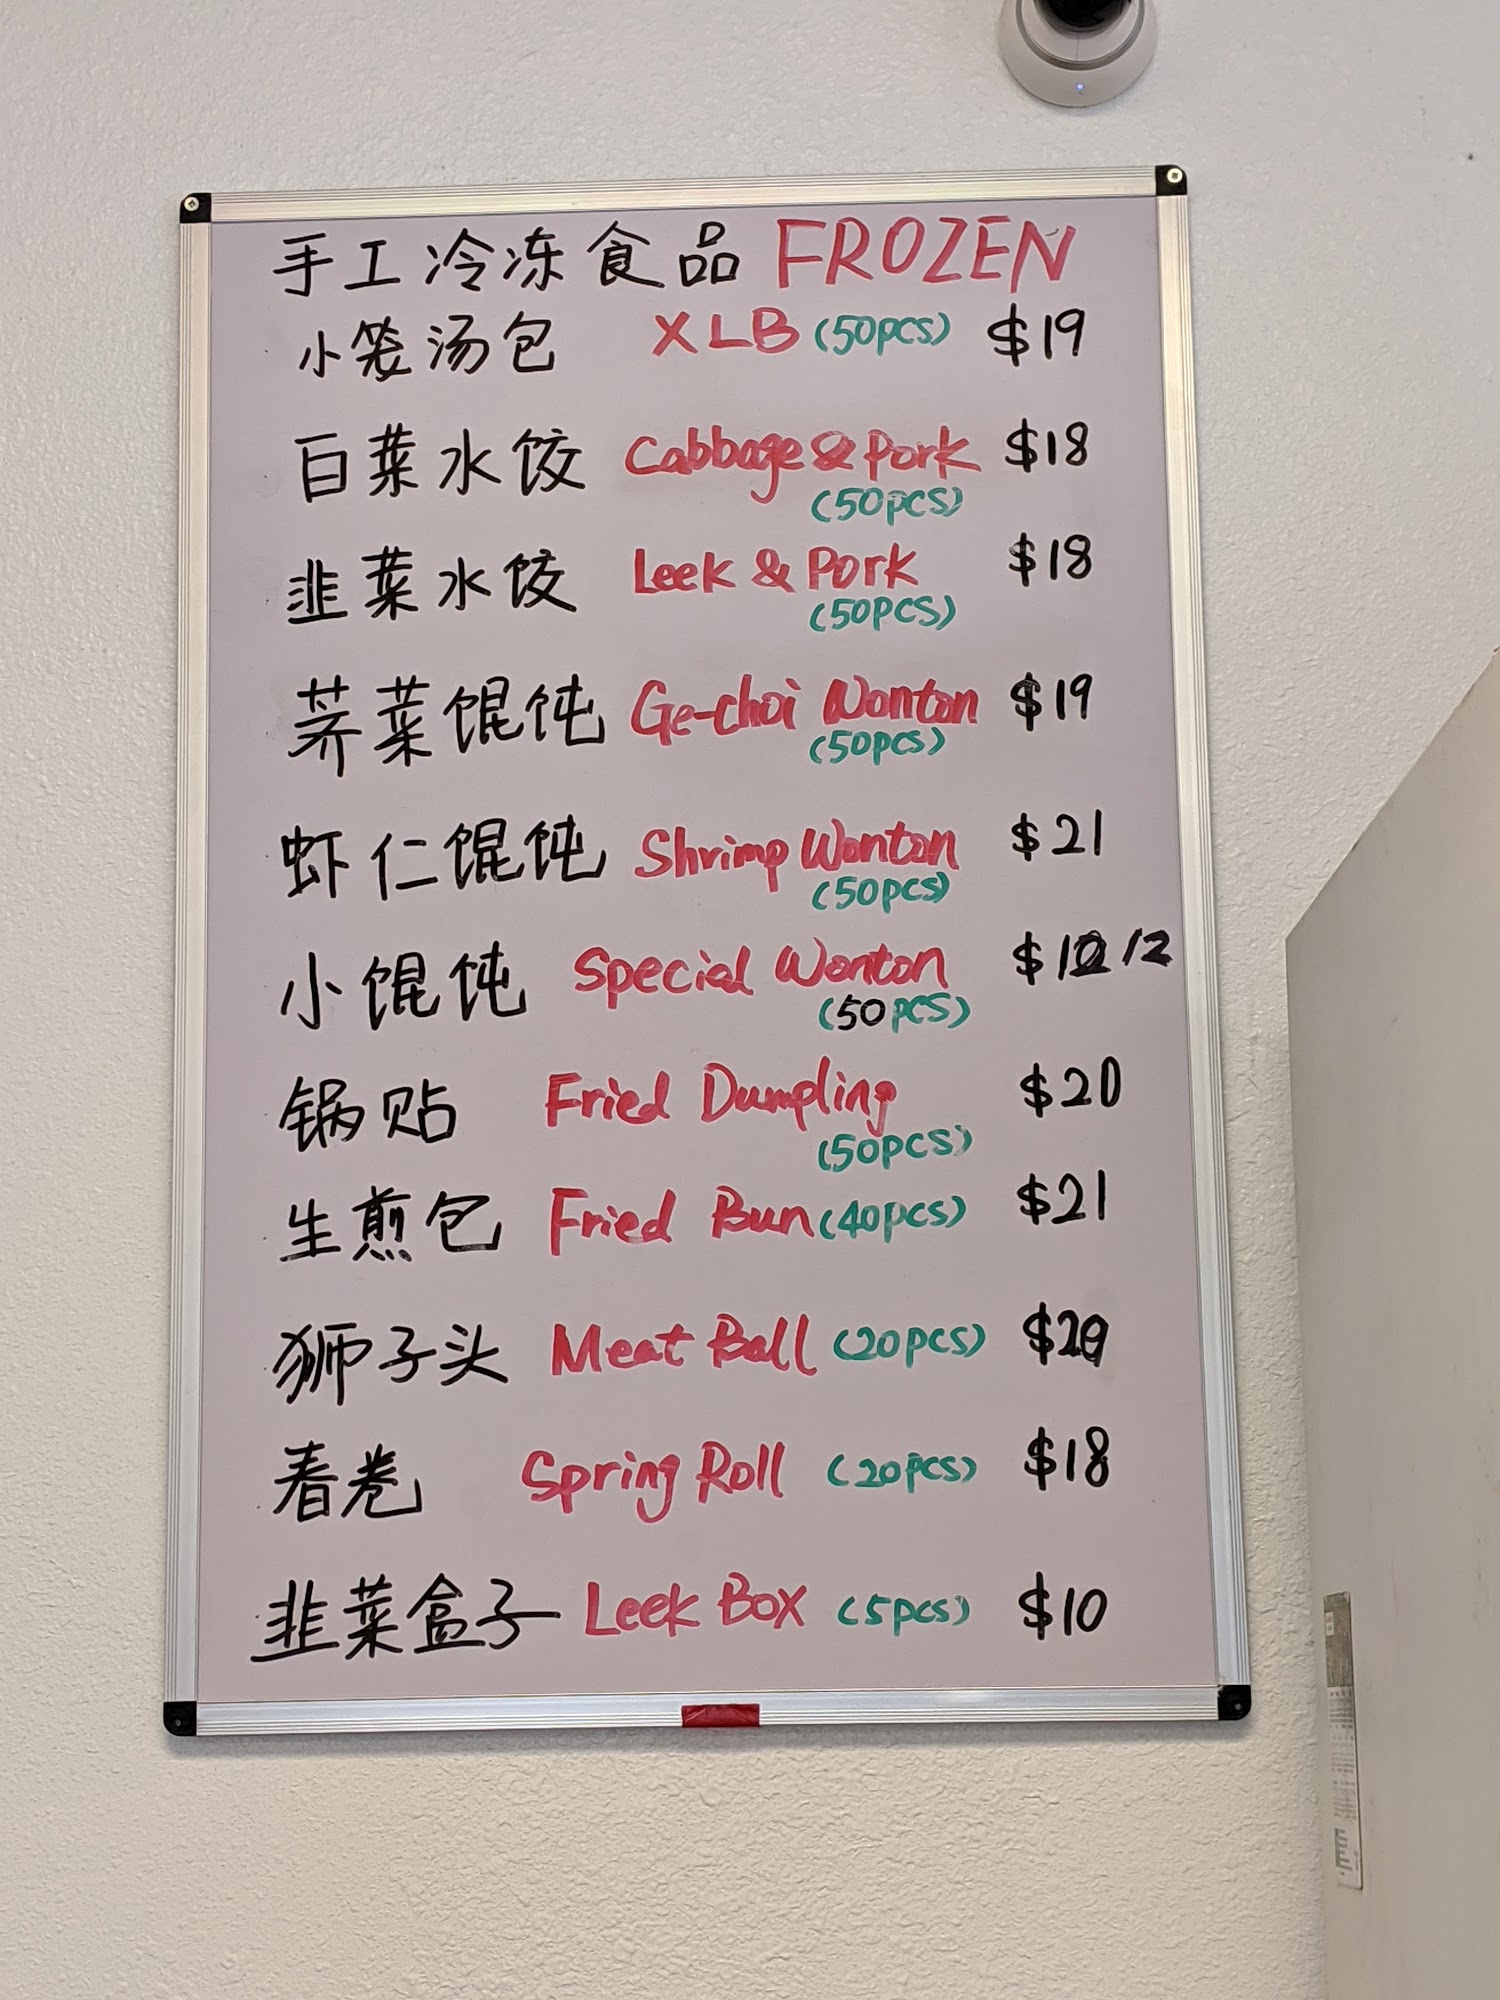 手工冷冻食品 FROZEN
小笼汤包 XLB (50pcs) $19
百菜水饺 Cabbage & Pork $18
(50pcs)
韭菜水饺 Leek & Pork $18
(50pcs)
荠菜馄饨 Ge-choi Wonton $19
(50pcs)
虾仁馄饨 Shrimp Wonton $21
(50pcs)
小馄饨 Special Wonton $12 12
(50pcs)
锅贴 Fried Dumpling $20
(50pcs)
生煎包 Fried Bun (40pcs) $21
狮子头 Meat Ball (20pcs) $20
春卷 Spring Roll (20pcs) $18
韭菜盒子 Leek Box (5pcs) $10